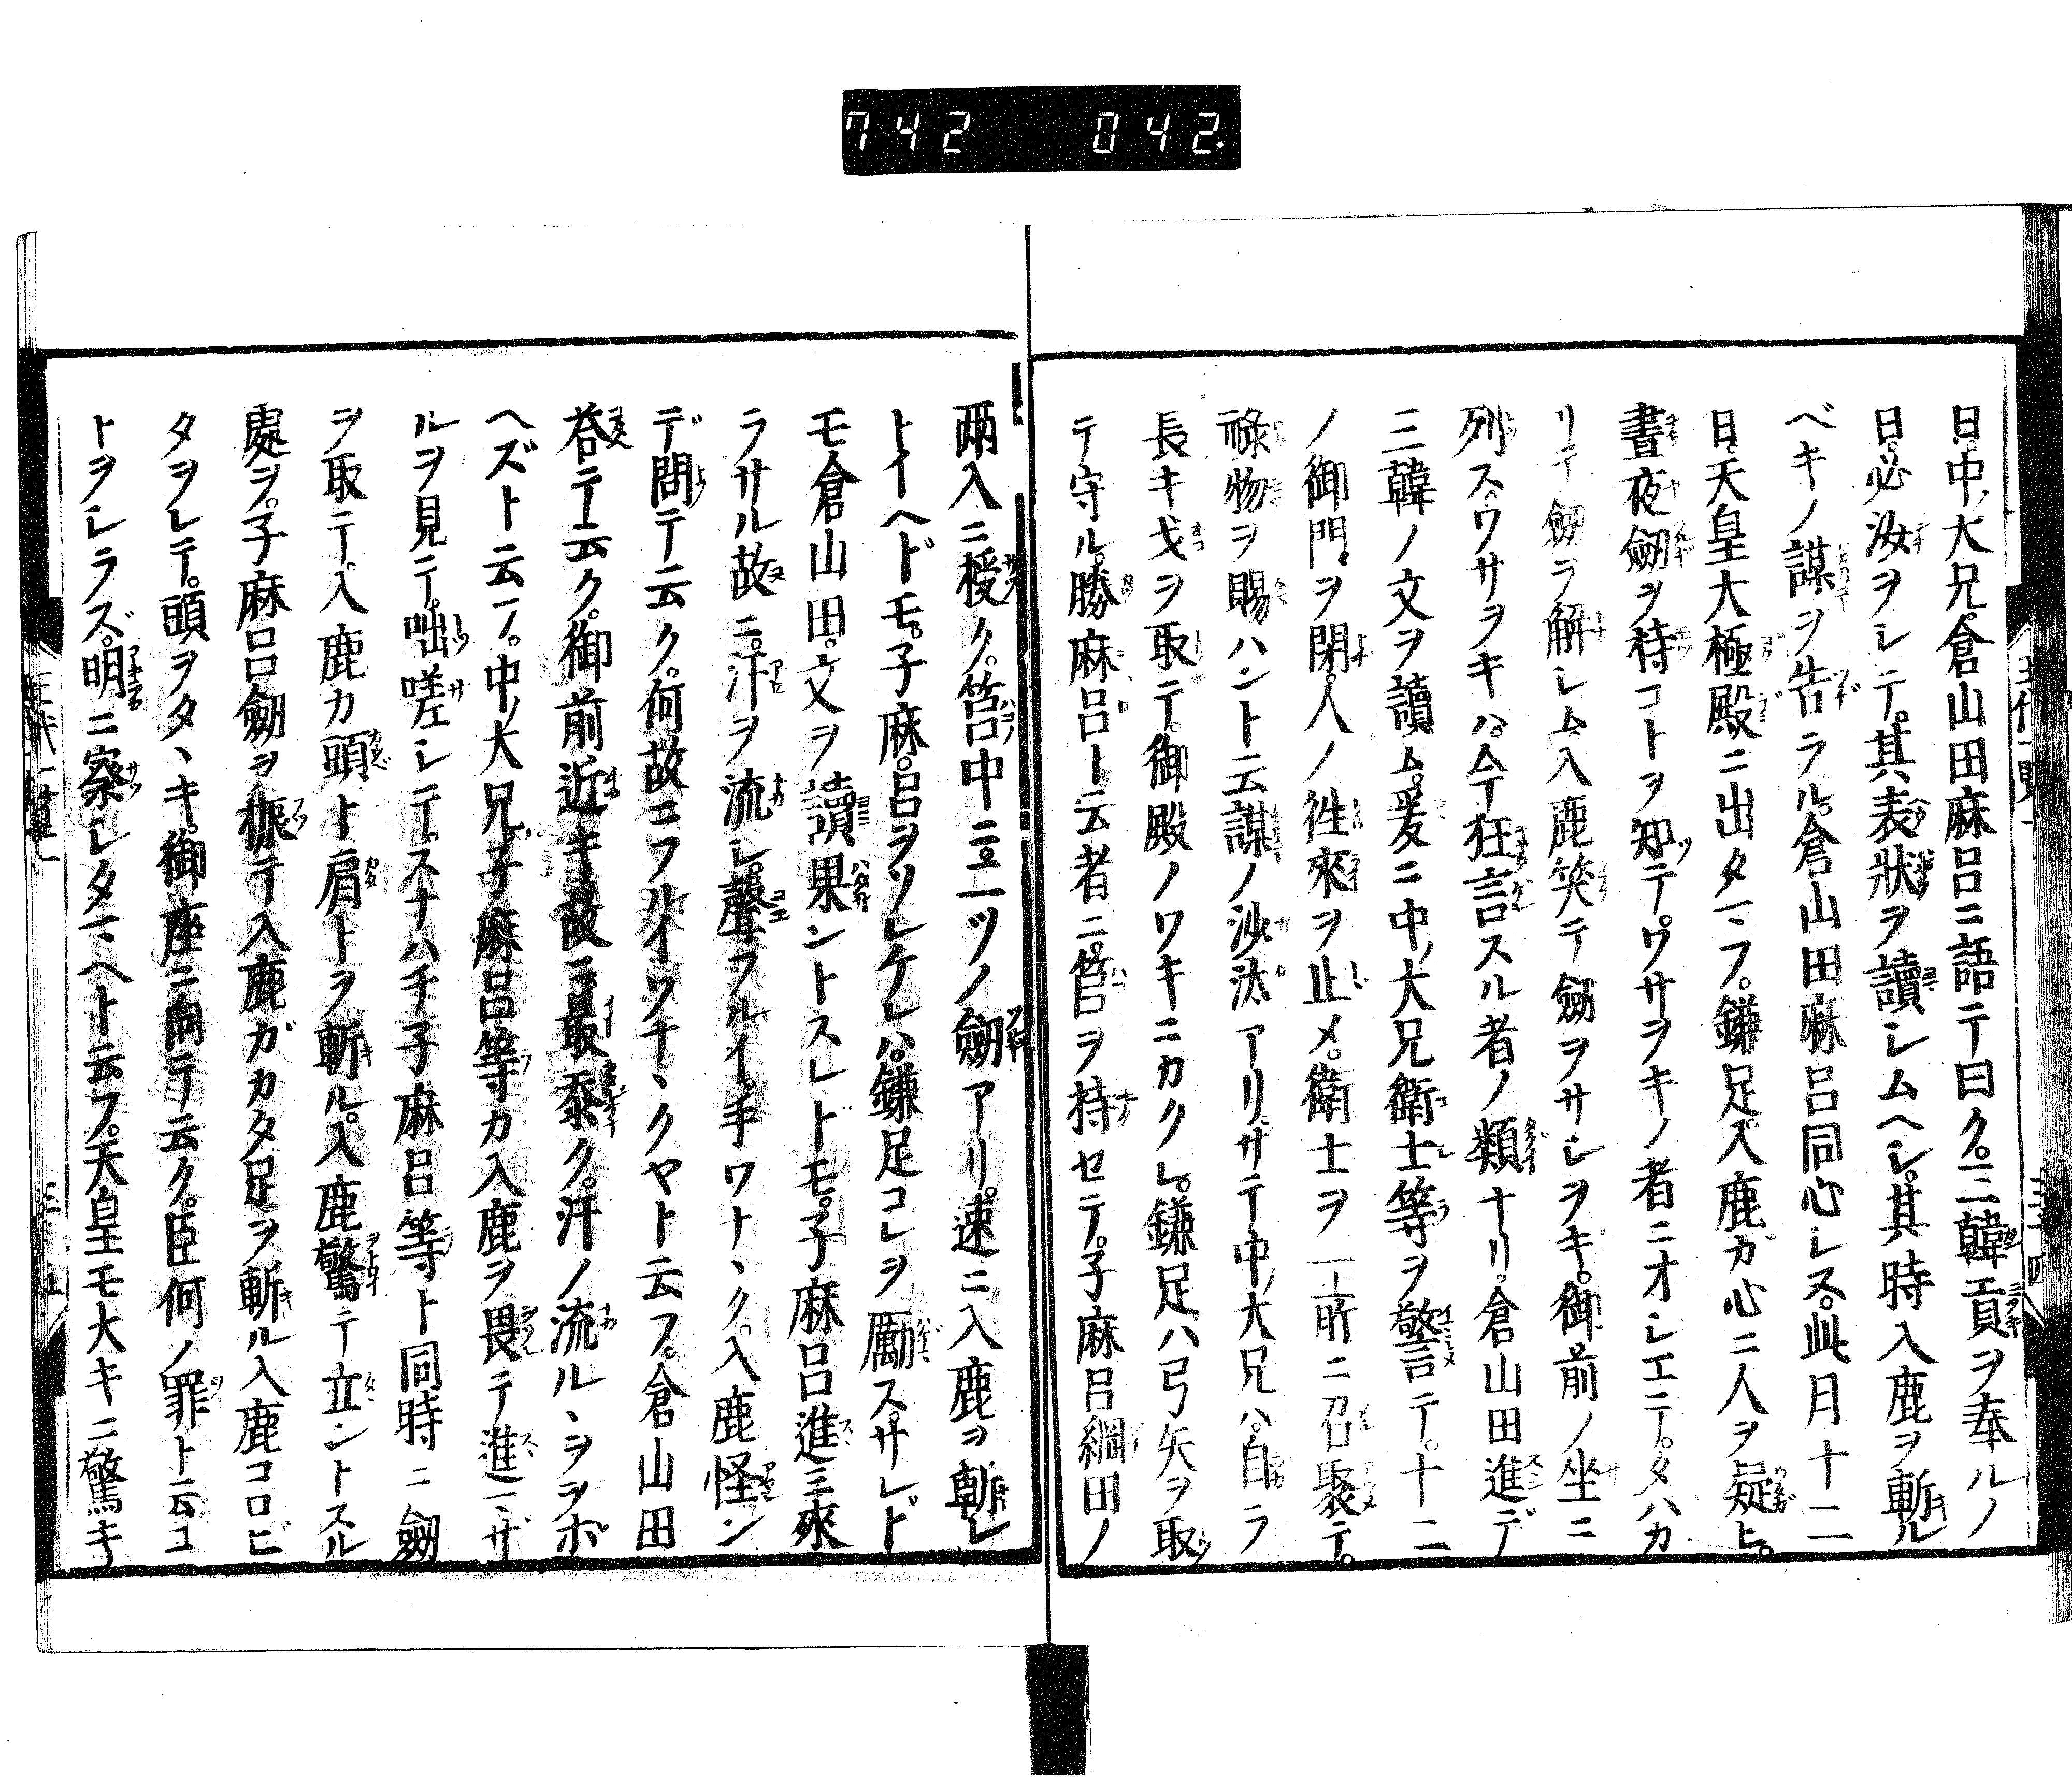 742 042.
日。中ノ大兄。倉山田麻呂ニ語テ曰ク。三韓貢ヲ奉ルノ
日。必汝ヲシテ。其表狀ヲ讀シムヘシ。其時入鹿ヲ斬ル
ベキノ謀ヲ告ラル。倉山田麻呂同心レス。此月十二
日。天皇大極殿ニ出タマフ。鎌足。入鹿ガ心ニ人ヲ疑ヒ。
晝夜劔ヲ持コトヲ知テ。ワサヲキノ者ニオシエテ。タハカ
リテ劔ヲ解シム。入鹿笑テ劔ヲサシヲキ。御前ノ坐ニ
列ス。ワサヲキハ。今狂言スル者ノ類ナリ。倉山田進デ
三韓ノ文ヲ讀ム。爰ニ中ノ大兄衛士等ヲ警テ。十二
ノ御門ヲ閉。人ノ徃來ヲ止メ。衛士ヲ一所ニ召聚テ。
祿物ヲ賜ハント云謀ノ沙汰アリ。サテ中ノ大兄ハ。自ラ
長キ戈ヲ取テ。御殿ノワキニカクレ。鎌足ハ弓矢ヲ取
テ守ル。勝麻呂ト云者ニ。筥ヲ持セテ。子麻呂綱田ノ
兩入ニ授ク。筥中ニ二ツノ劔アリ。速ニ入鹿ヲ斬レ
トイヘドモ。子麻呂ヲソレケレハ。鎌足コレヲ勵ス。サレド
モ倉山田。文ヲ讀果ントスレトモ。子麻呂進ミ來
ラサル故ニ。汗ヲ流シ。聲フルイ。手ワナヽク。入鹿怪ン
デ問テ云ク。何故ニフルイワナヽクヤト云フ。倉山田
荅テ云ク。御前近キ故ニ最忝ク。汗ノ流ルヽヲヲボ
ヘズト云フ。中ノ大兄。子麻呂等カ入鹿ヲ畏テ進マザ
ルヲ見テ。咄嗟シテ。スナハチ子麻呂等ト同時ニ劔
ヲ取テ。入鹿カ頭ト肩トヲ斬ル。入鹿驚テ立ントスル
處ヲ。子麻呂劔ヲ振テ入鹿ガカタ足ヲ斬ル入鹿コロビ
タヲレテ。頭ヲタヽキ。御座ニ向テ云ク。臣何ノ罪ト云コ
トヲシラズ。明ニ察シタマヘト云フ。天皇モ大キニ驚キ